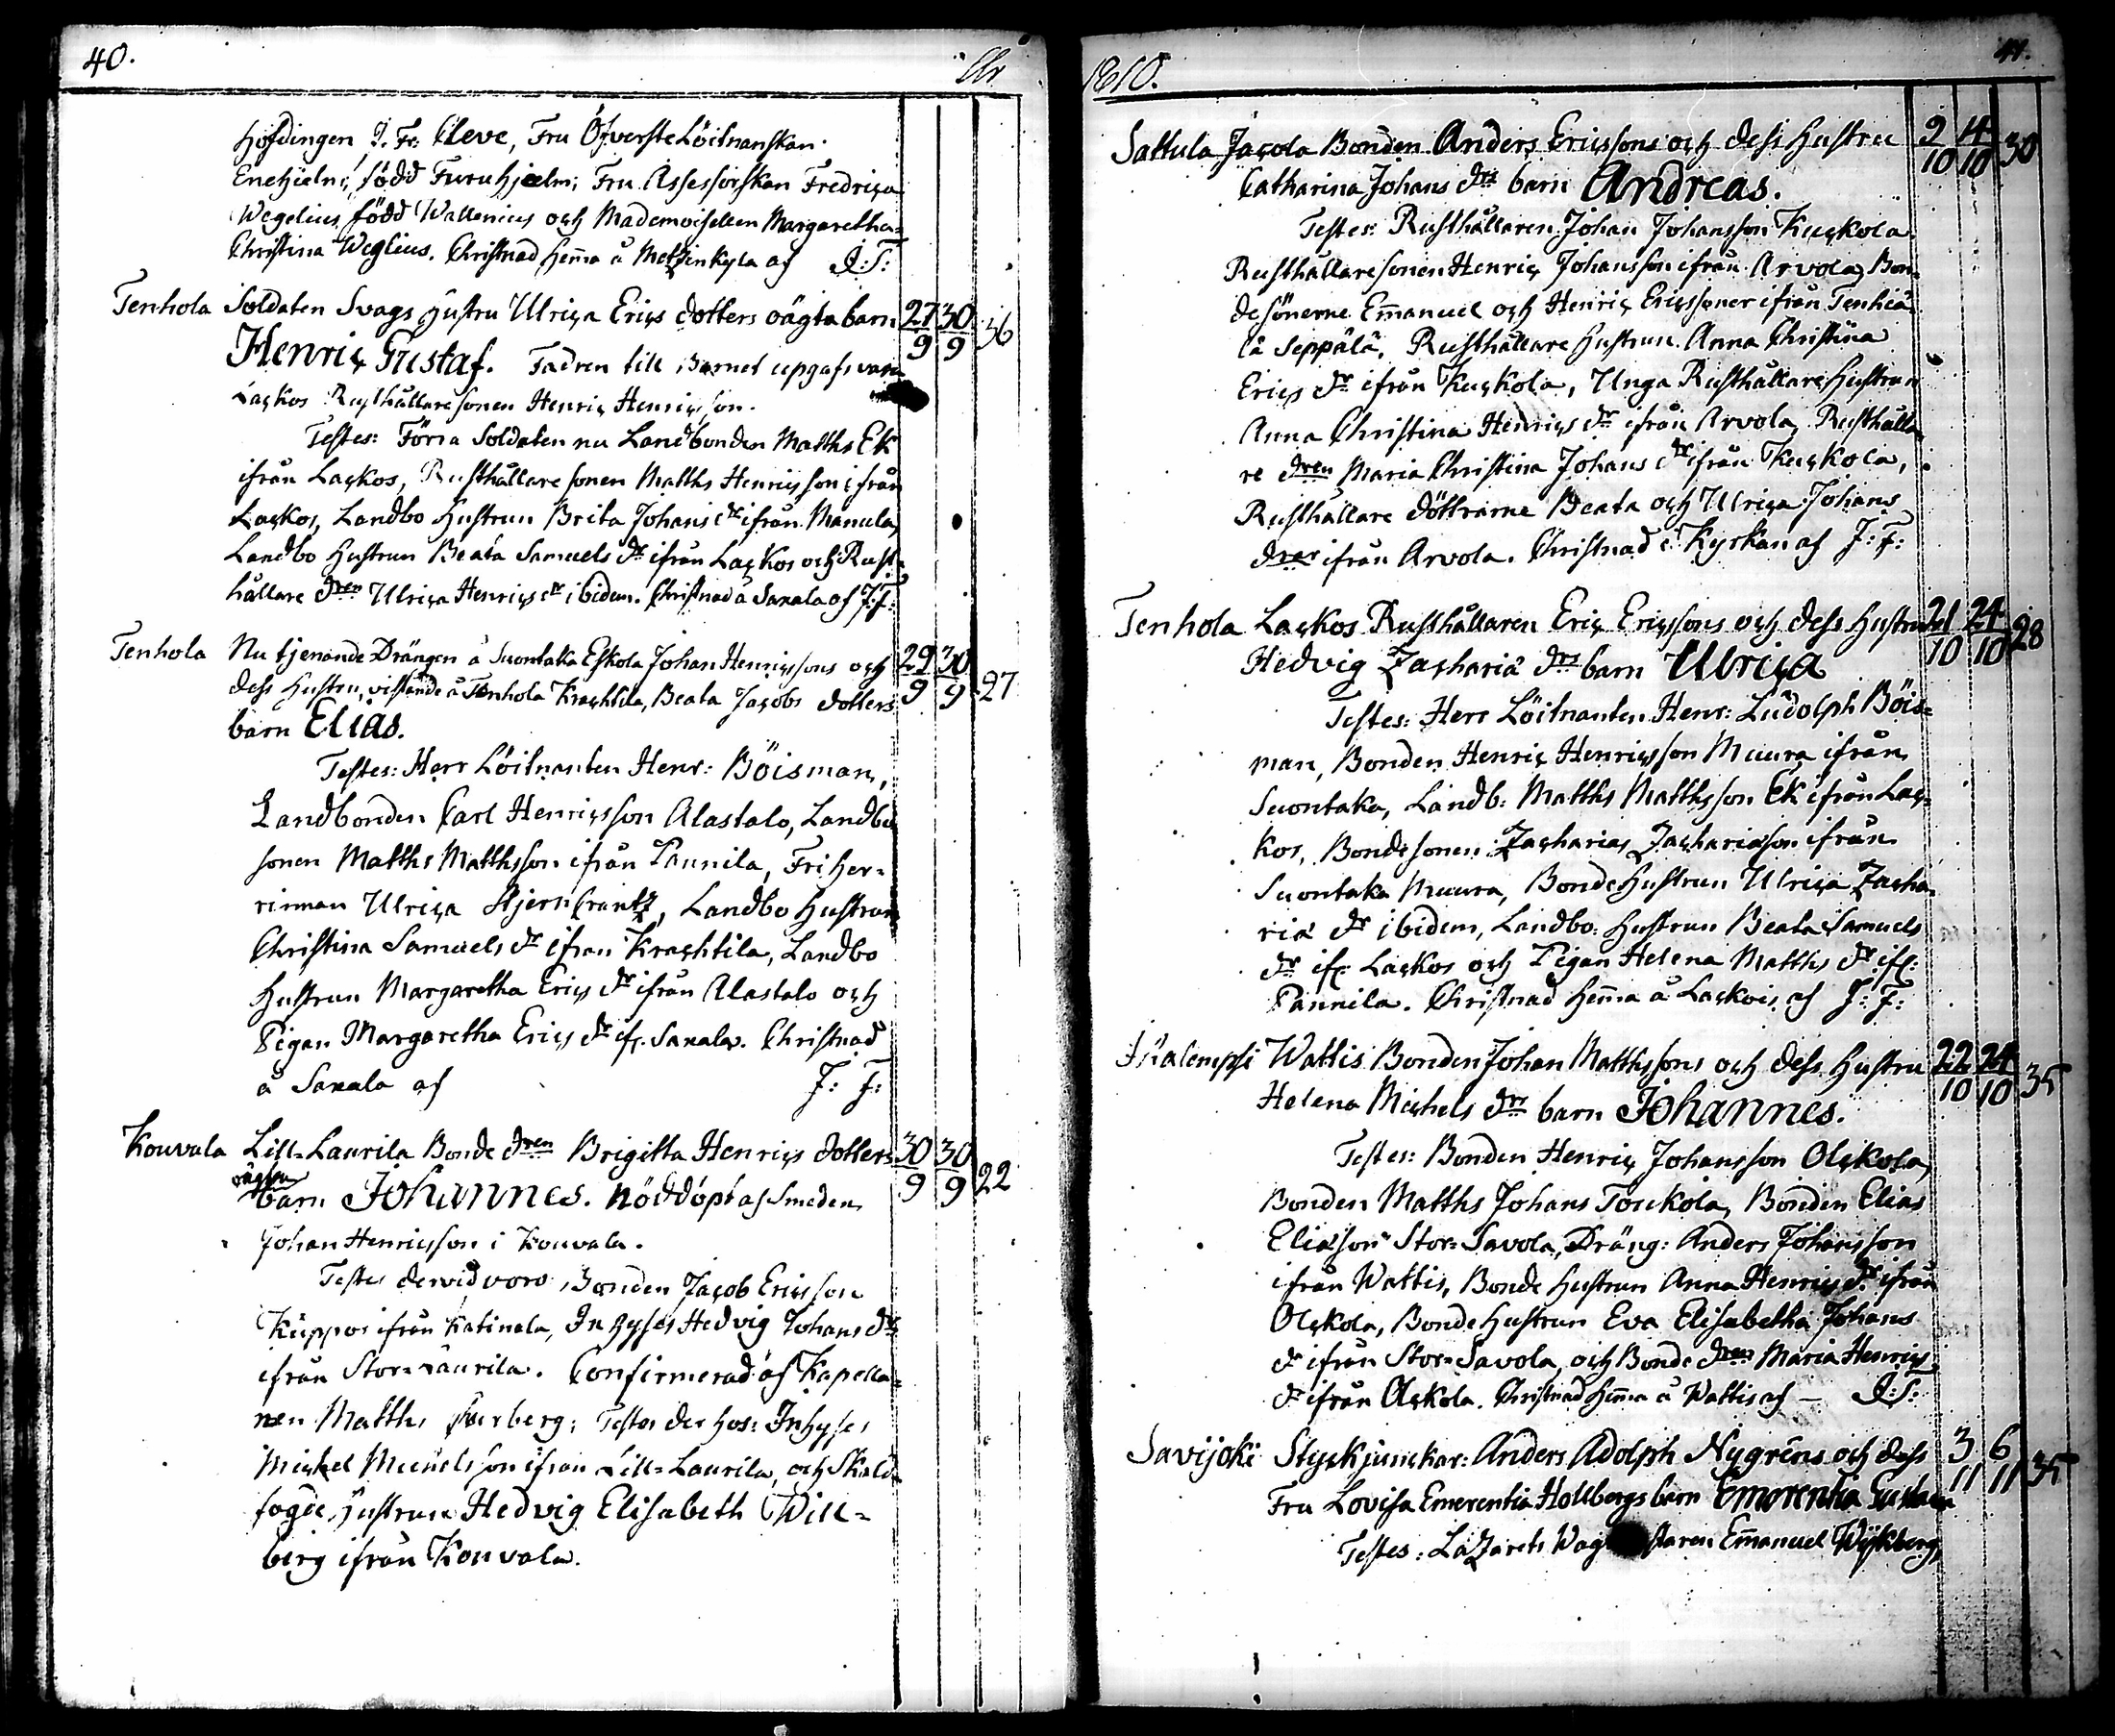 40.
År
Höfdingen I. Fr: Cleve, Fru ÖfversteLöitnanskan
Enehjelm, född Furuhjelm; Fru Assessorskan Fredrica
Wegelius, född Wallenius och Mademoisellen Margaretha
Christina Weglius. Christnad hem̄a å Metzinkyla af J: S:
Tenhola Soldaten Svags hustru Ulrica Erics dotters oägta barn 27/9 30/9 36
Henric Gustaf. Fadren till Barnet upgafs vara
Lackos Rusthållare sonen Henric Henricsson.
Testes: Förra Soldaten nu Landbonden Matths Ek
ifrån Lackos, Rusthållare sonen Matths Henricsson ifrån
Lackos, Landbo Hustrun Brita Johans dr ifrån Manula,
Landbo Hustrun Beata Samuels dr ifrån Lackos och Rust-
hållare dren Ulrica Henrics dr ibidem. Christnad å Saxala af J: F:
Tenhola Nu tjenande Drängen å Suontaka Eskola Johan Henricssons och 29/9 30/9 27
dess Hustru, vistande å Tenhola Krachtila, Beata Jacobs dotters
barn Elias.
Testes: Herr Löitnanten Henr: Böisman,
Landbonden Carl Henricsson Alastalo, Landbo
sonen Matths Matthsson ifrån Pannila, Friher-
rinnan Ulrica Stjerncrantz, Landbo Hustrun
Christina Samuels dr ifrån Krachtila, Landbo
Hustrun Margaretha Erics dr ifrån Alastalo och
Pigan Margaretha Erics dr ifr. Saxala. Christnad
å Saxala af J: F:
Kouvala Lill-Laurila Bonde dren Brigitta Henrics dotters 30/9 30/9 22
oägta
barn Johannes. Nöddöpt af Smeden
Johan Henricsson i Kouvala.
Testes dervid voro Bonden Jacob Ericsson
Kuppos ifrån Katinala, Inhyses Hedvig Johans dr
ifrån Stor-Laurila. Confirmerad af Kapella-
nen Matths berg; Testes der hos: Inhyses
Michel Michelsson ifrån Lill-Laurila, och
fogde Hustrun Hedvig Elisabeth Will-
berg ifrån Kouvala.
1810.
41.
Sattula Jacola Bonden Anders Ericssons och dess Hustru 2/10 4/10 30
Catharina Johans drs barn Andreas.
Testes: Rusthållaren Johan Johansson Kuckola
Rusthållare sonen Henric Johansson ifrån Arvola, Bon-
desönerne Em̄anuel och Henric Ericssoner ifrån Tenhiä-
lä Seppälä, Rusthållare Hustrun Anna Christina
Erics dr ifrån Kuckola, Unga Rusthållare Hustrun
Anna Christina Henrics dr ifrån Arvola, Rusthålla-
re dren Maria Christina Johans dr ifrån Kuckola,
Rusthållare döttrarne Beata och Ulrica Johans
drar ifrån Arvola. Christnad i Kyrkan af J: F:
Tenhola Lackos Rusthållaren Eric Ericssons och dess Hustru 21/10 24/10 28
Hedvig Zachariæ drs barn Ulrica
Testes: Herr Löitnanten Henr: Ludolph Böis-
man, Bonden Henric Henricsson Muura ifrån
Suontaka, Landb: Matths Matthsson Ek ifrån Lac-
kos, Bondesonen Zacharias Zachariasson ifrån
Suontaka Muura, BondeHustrun Ulrica Zacha-
riæ dr ibidem, Landbo: Hustrun Beata Samuels
dr ifr: Lackos och Pigan Helena Matths dr ifr:
Pannila. Christnad hem̄a å Lackois af J: F:
Wattis Bonden Johan Matthssons och dess Hustru 22/10 24/10 35
Helena Michels drs barn Johannes.
Testes: Bonden Henric Johansson Olckola,
Bonden Matths Johans Touckola, Bonden Elias
Eliasson Stor-Savola, Dräng: Anders Johansson
ifrån Wattis, Bonde Hustrun Anna Henrics dr ifrån
Olckola, Bonde Hustrun Eva Elisabetha Johans
dr ifrån Stor-Savola, och Bonde dren Maria Henrics
dr ifrån Olckola. Christnad hem̄a å Wattis af — J: S:
Savijoki Styckjunckar: Anders Adolph Nygréns och dess 3/11 6/11 35
Fru Lovisa Emerentia Hollbergs barn Emerentia Gustava
Testes: Lazarets Wag staren Em̄anuel Wijkberg,